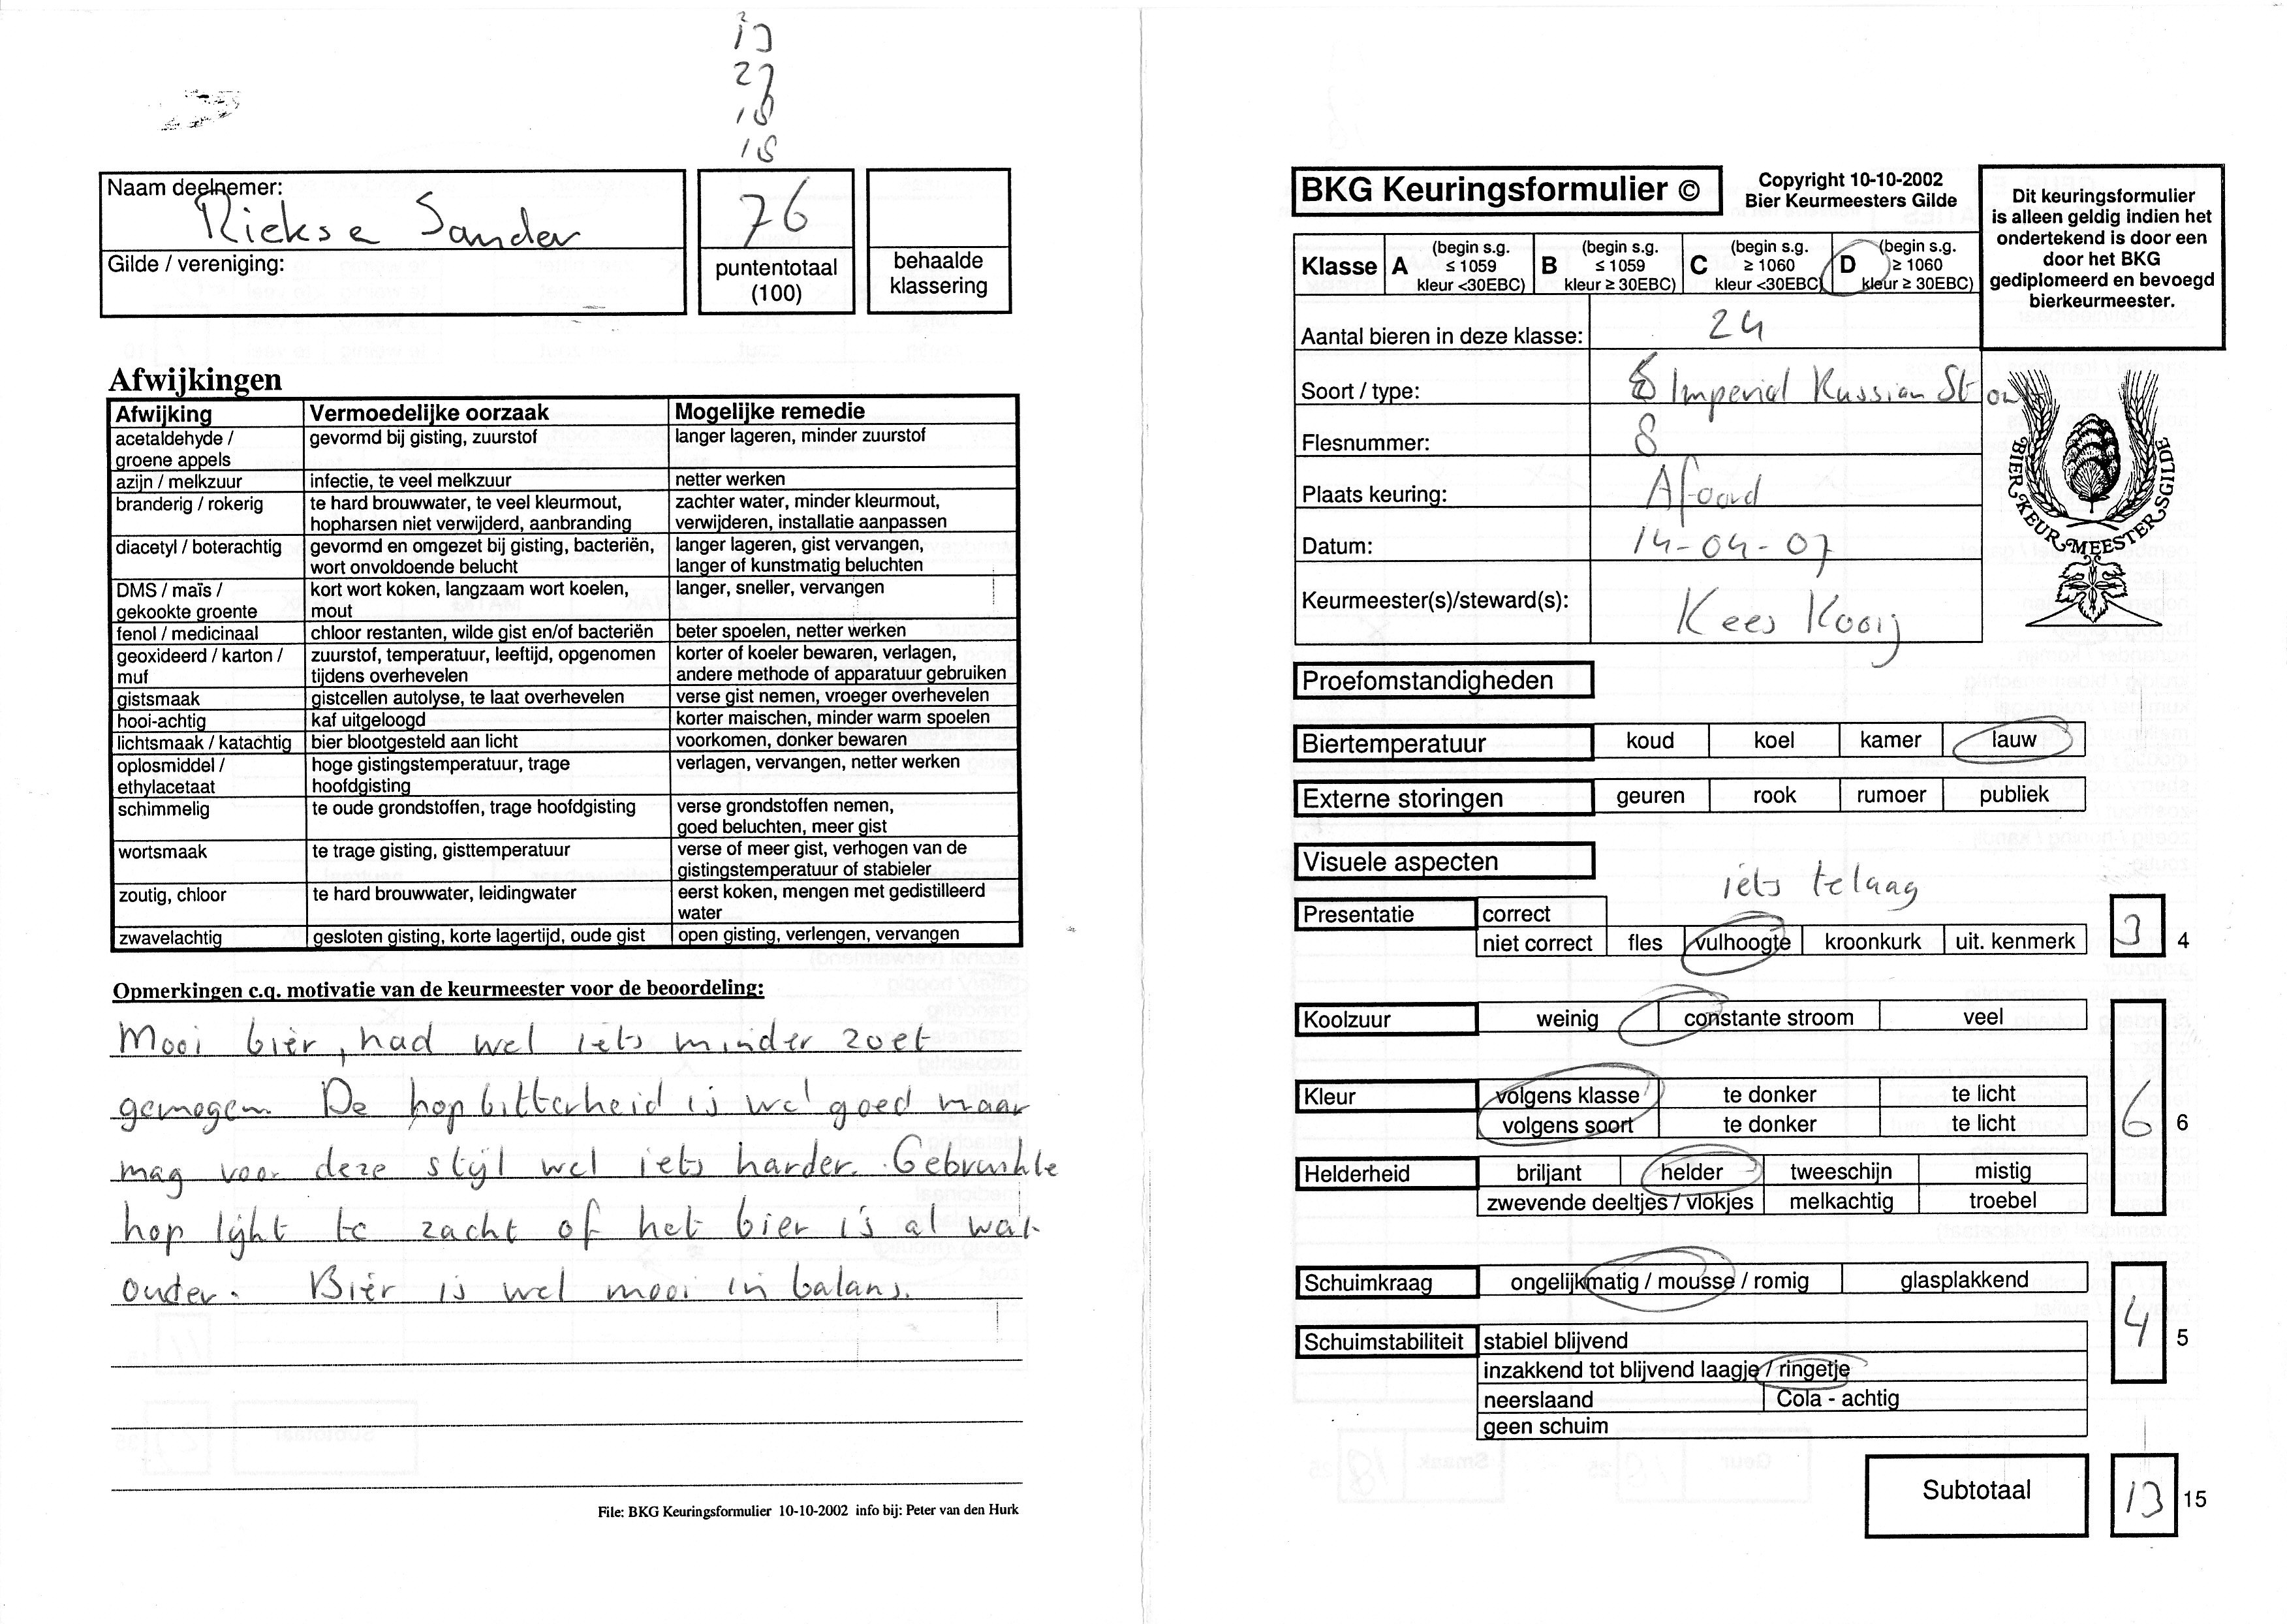 13
27
18
18
Naam deelnemer:
Riekse Sander
Gilde / vereniging:
76
puntentotaal
(100)
behaalde
klassering
Afwijkingen
Afwijking Vermoedelijke oorzaak Mogelijke remedie
acetaldehyde / groene appels gevormd bij gisting, zuurstof langer lageren, minder zuurstof
azijn / melkzuur infectie, te veel melkzuur netter werken
branderig / rokerig te hard brouwwater, te veel kleurmout, zachter water, minder kleurmout,
hopharsen niet verwijderd, aanbranding verwijderen, installatie aanpassen
diacetyl / boterachtig gevormd en omgezet bij gisting, bacteriën, langer lageren, gist vervangen,
wort onvoldoende belucht langer of kunstmatig beluchten
DMS / maïs / kort wort koken, langzaam wort koelen, langer, sneller, vervangen
gekookte groente mout
fenol / medicinaal chloor restanten, wilde gist en/of bacteriën beter spoelen, netter werken
geoxideerd / karton / zuurstof, temperatuur, leeftijd, opgenomen korter of koeler bewaren, verlagen,
muf tijdens overhevelen andere methode of apparatuur gebruiken
gistsmaak gistcellen autolyse, te laat overhevelen verse gist nemen, vroeger overhevelen
hooi-achtig kaf uitgeloogd korter maischen, minder warm spoelen
lichtsmaak / katachtig bier blootgesteld aan licht voorkomen, donker bewaren
oplosmiddel / hoge gistingstemperatuur, trage verlagen, vervangen, netter werken
ethylacetaat hoofdgisting
schimmelig te oude grondstoffen, trage hoofdgisting verse grondstoffen nemen,
goed beluchten, meer gist
wortsmaak te trage gisting, gisttemperatuur verse of meer gist, verhogen van de
gistingstemperatuur of stabieler
zoutig, chloor te hard brouwwater, leidingwater eerst koken, mengen met gedistilleerd
water
zwavelachtig gesloten gisting, korte lagertijd, oude gist open gisting, verlengen, vervangen
Opmerkingen c.q. motivatie van de keurmeester voor de beoordeling:
Mooi bier, had wel iets minder zoet
gemogen. De hopbitterheid is wel goed maar
mag voor deze stijl wel iets harder. Gebruikte
hop lijkt te zacht of het bier is al wat
ouder. Bier is wel mooi in balans.
File: BKG Keuringsformulier 10-10-2002 info bij: Peter van den Hurk
BKG Keuringsformulier ©
Copyright 10-10-2002
Bier Keurmeesters Gilde
Dit keuringsformulier
is alleen geldig indien het
ondertekend is door een
door het BKG
gediplomeerd en bevoegd
bierkeurmeester.
Klasse A (begin s.g. ≤ 1059 kleur <30EBC) B (begin s.g. ≤ 1059 kleur ≥ 30EBC) C (begin s.g. ≥ 1060 kleur <30EBC) D (begin s.g. ≥ 1060 kleur ≥ 30EBC)
Aantal bieren in deze klasse: 24
Soort / type: Imperial Russian Stout
Flesnummer: 8
Plaats keuring: Afoord
Datum: 14-04-07
Keurmeester(s)/steward(s): Kees Kooij
BIER KEUR MEESTERS GILDE
Proefomstandigheden
Biertemperatuur koud koel kamer lauw
Externe storingen geuren rook rumoer publiek
Visuele aspecten
iets te laag
Presentatie correct
niet correct fles vulhoogte kroonkurk uit. kenmerk 3 4
Koolzuur weinig constante stroom veel
Kleur volgens klasse te donker te licht
volgens soort te donker te licht 6 6
Helderheid briljant helder tweeschijn mistig
zwevende deeltjes / vlokjes melkachtig troebel
Schuimkraag ongelijkmatig / mousse / romig glasplakkend
Schuimstabiliteit stabiel blijvend 4 5
inzakkend tot blijvend laagje / ringetje
neerslaand Cola - achtig
geen schuim
Subtotaal 13 15